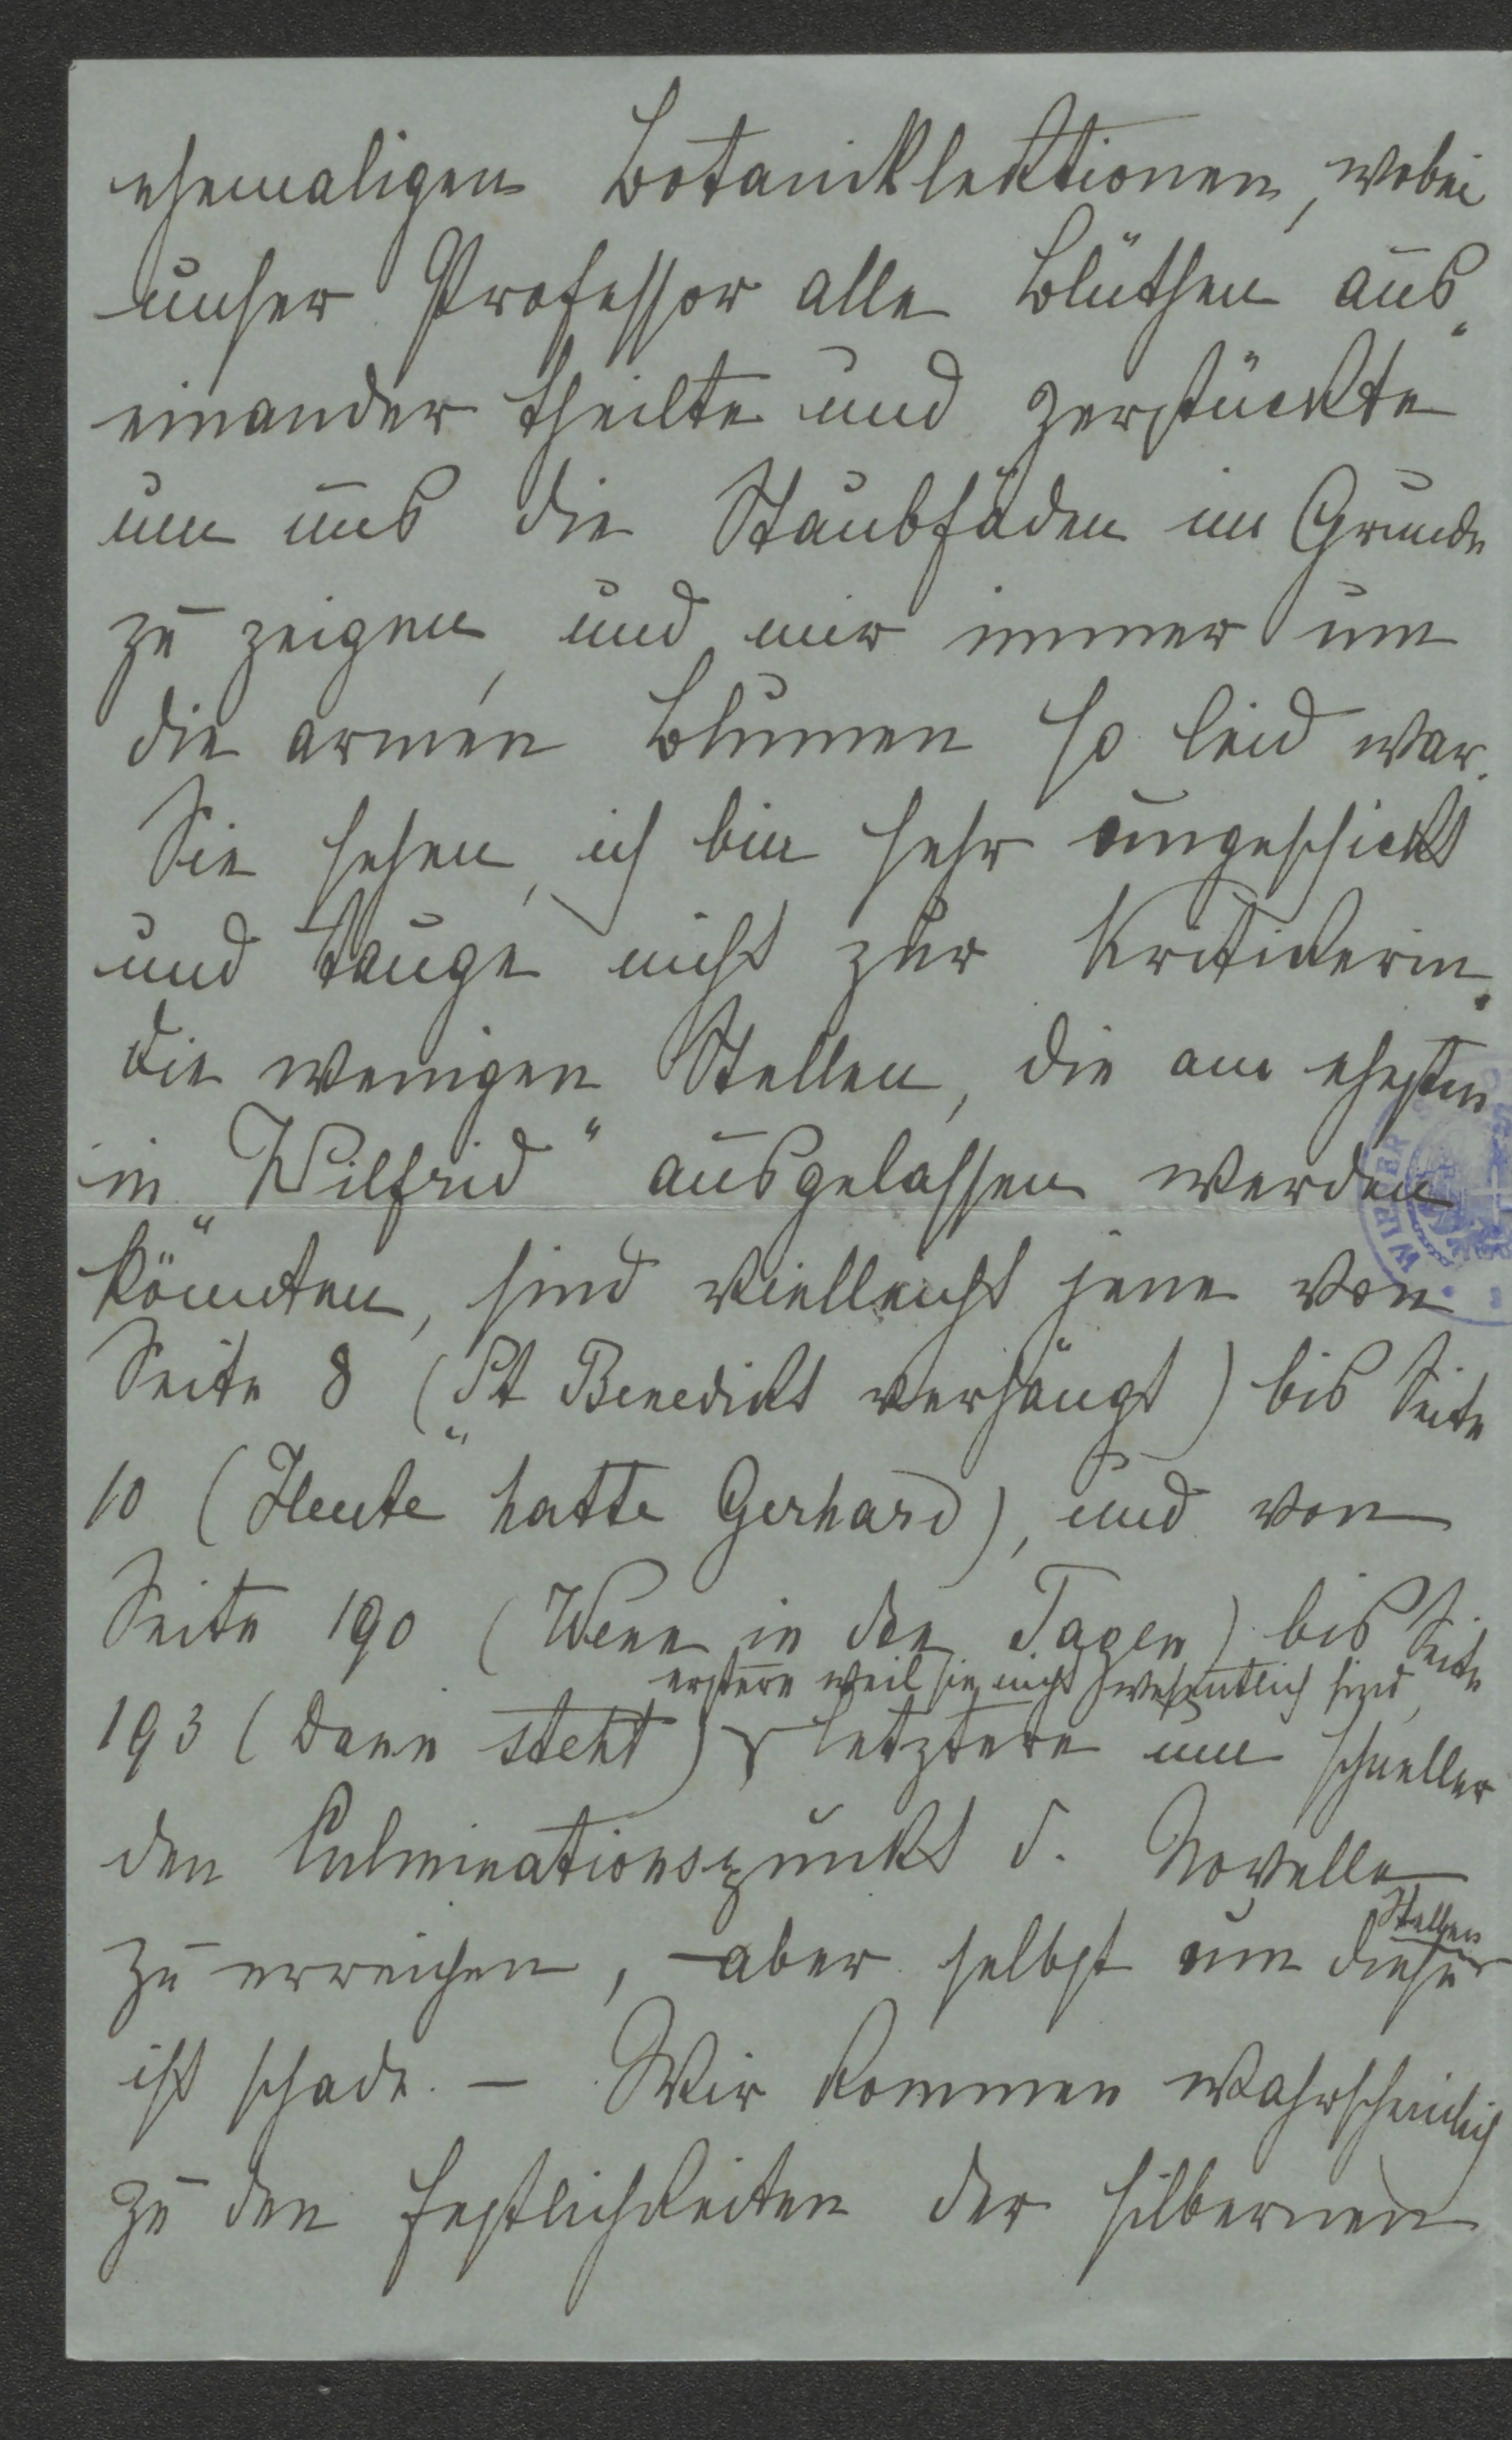 ehemaligen Botanicklektionen, wobei
unser Professor alle Blüthen aus„
einander theilte und zerstückte
um uns die Staubfäden im Grunde
zu zeigen, und mir immer um
die armen Blumen so leid war.
Sie sehen, ich bin sehr ungeschickt
und tauge nicht zur Kritikerin.
Die wenigen Stellen, die am ehesten
in „Wilfrid“ ausgelassen werden
könnten, sind vielleicht jene von
Seite 8 („St Benedikt verhängt) bis Seite
10 (Heute“ hatte Gerhard), und von
Seite 190 (Wenn in den Tagen) bis Seite
erstere weil sie nicht wesentlich sind,
193 (Dann steht) letztere um schneller
den Culminationspunkt d. Novelle
Stellen
zu erreichen, – aber selbst um diese
ist schade. – Wir kommen wahrscheinlich
zu den Festlichkeiten der silbernen
WIENER